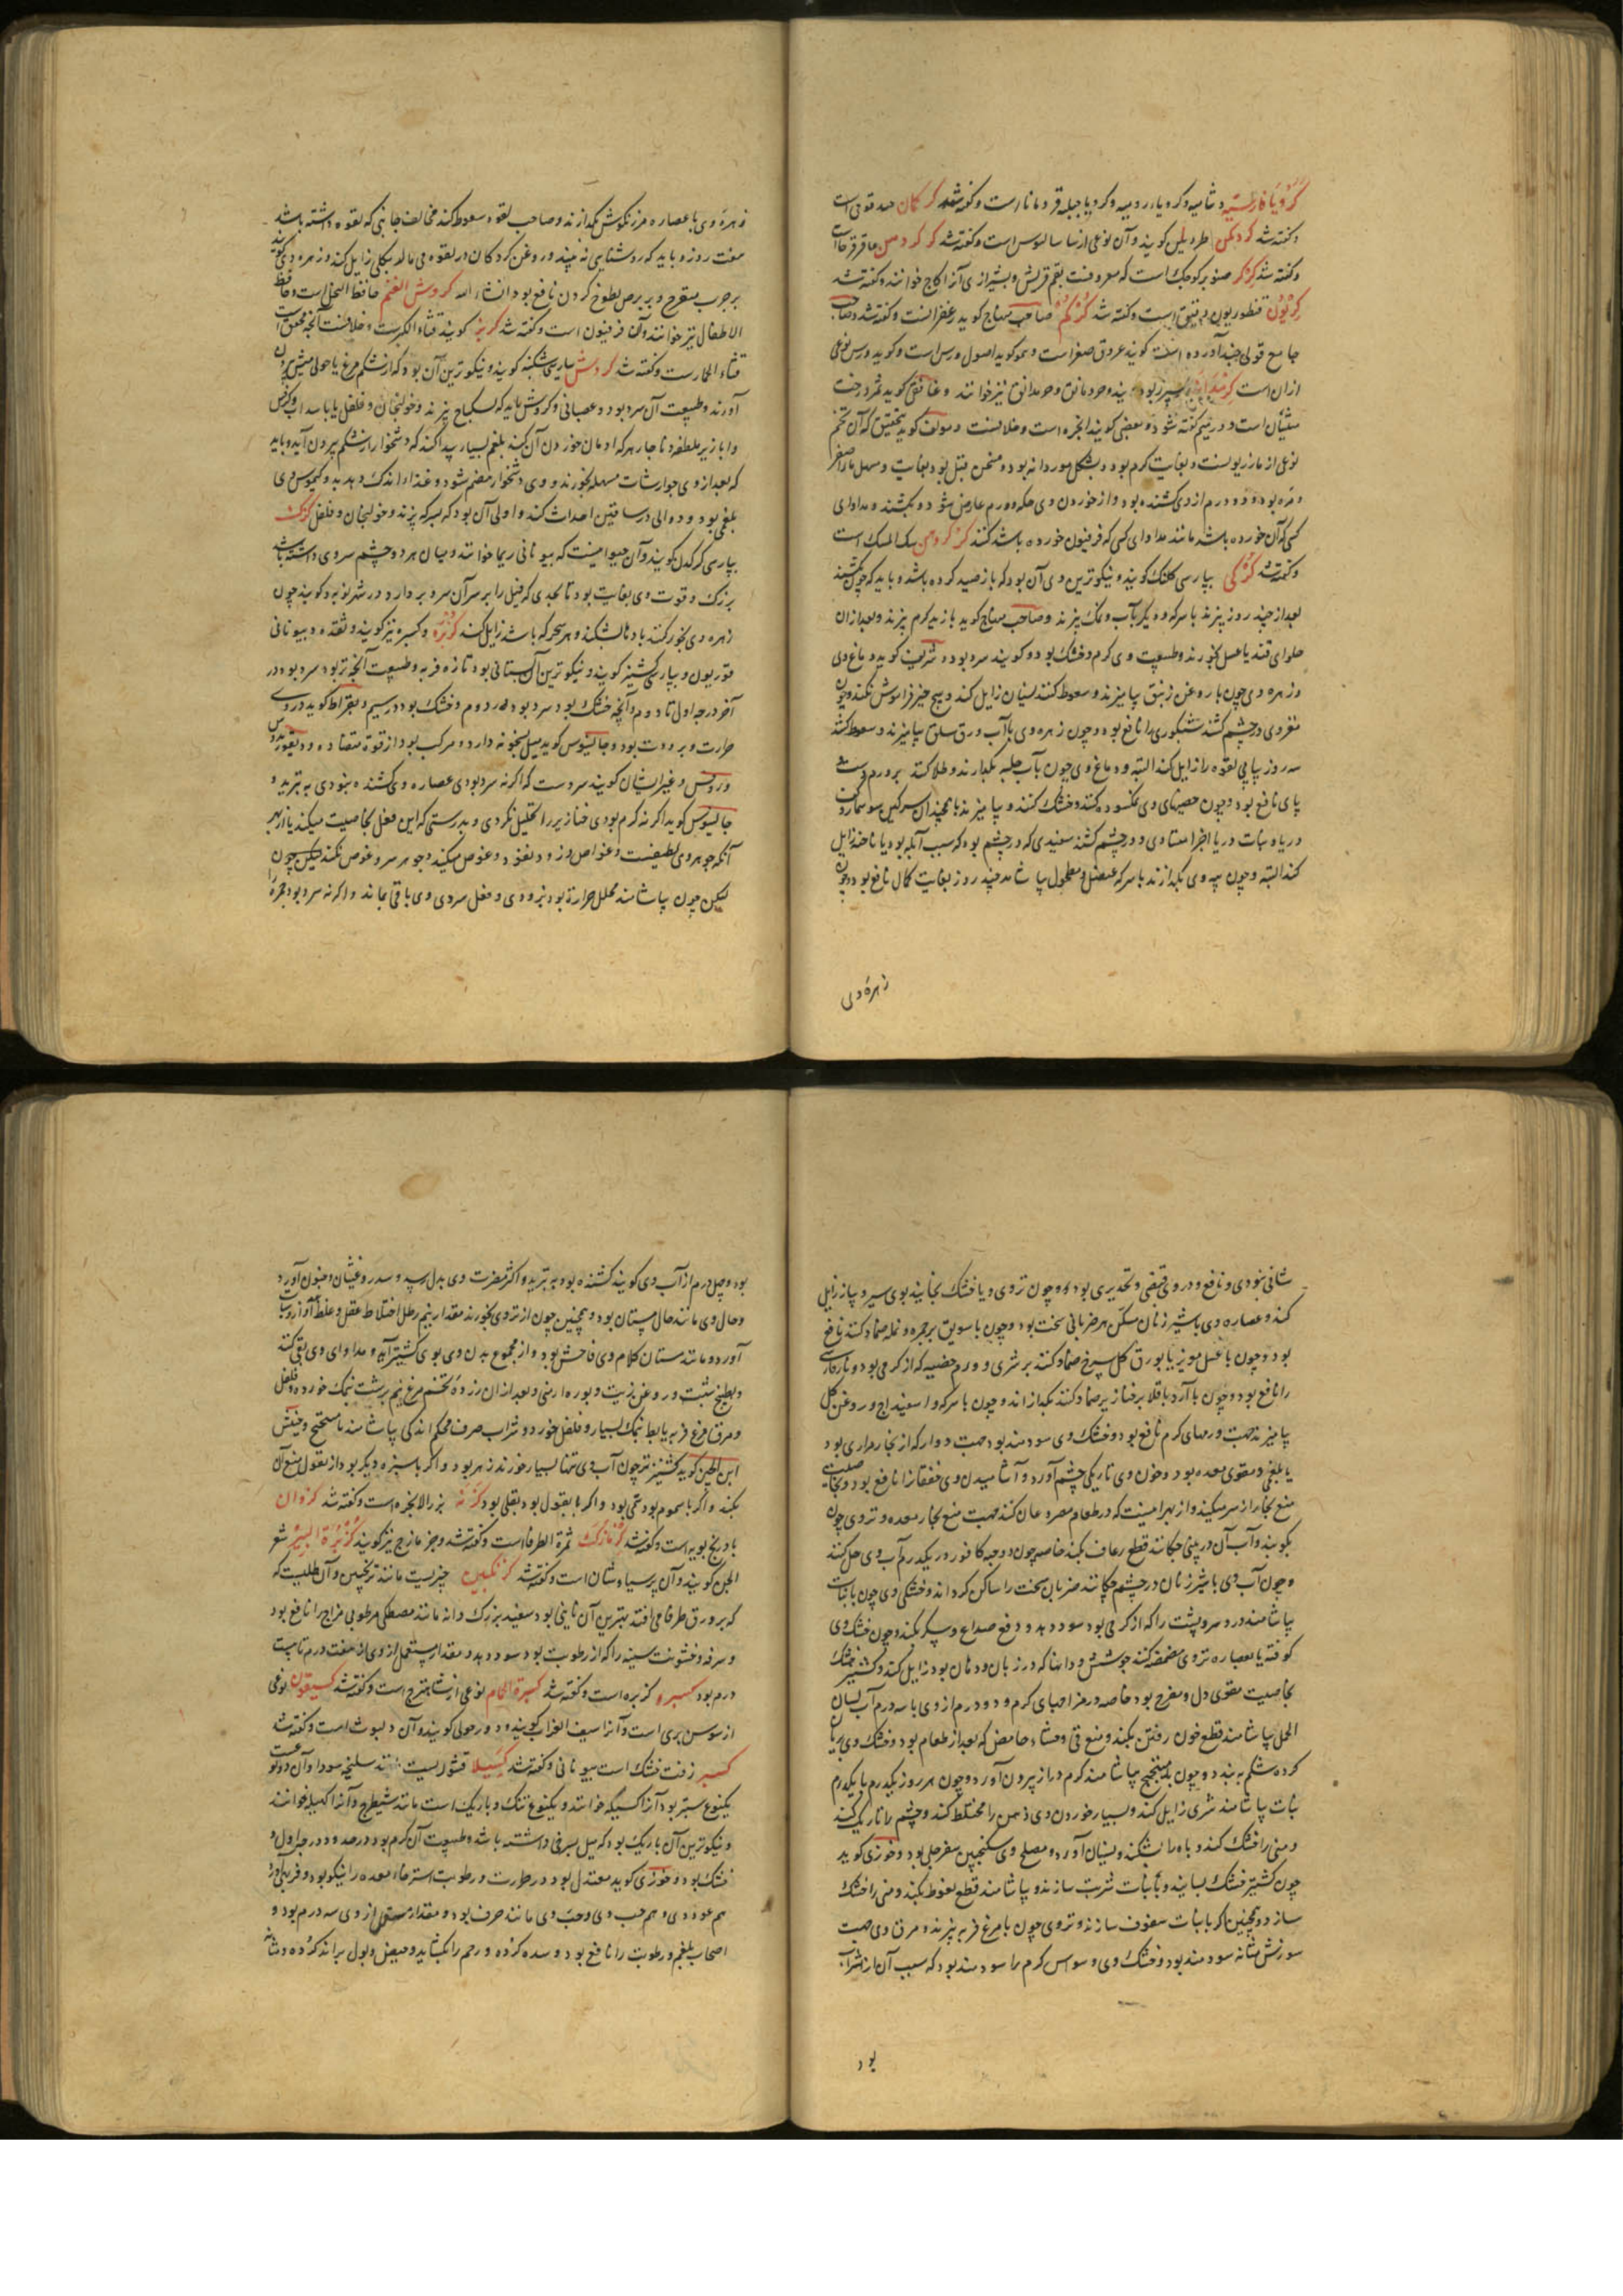 کرویا فارسیه و شامیه و کرویاء رومیه و کرویا جبلیه قردمانا است و گفته شد کرکان حندقوقی است
و گفته شد کردمکن اطریلس کویند و آن نوعی از ساسالیوس است و گفته شد کرکردهن عاقرقرحا است
و گفته شد کرکر صنوبر کوچک است که معروفست بقم قریش و بشیرازی آنرا کاج خوانند و گفته شد
کریون قنطوریون دقیق است و گفته شد کرکم صاحب منهاج کوید زعفرانست و گفته شد و صاحب
جامع قولی چند آورده است کویند عروق صفر است و هم کوید اصول ورس است و کوید ورس نوعی
از ان است
نوعی از مازریونست و بغایت کرم بود و بشکل موردانه بود و مسخن بود بغایت و مسهل ماء اصفر
و مره بود و دو درم از وی کشنده بود و از خوردن وی حکه و ورم عارض شود و بکشند و مداوای
کسی که آن خورده باشد مانند مداوای کسی که فرفیون خورده باشد کنند سک المسک است
و گفته شد کرکی بپارسی کلنک کویند و نیکوترین وی آن بود که باز صید کرده باشد و باید که چون بکشند
بعد از چند روز پزند با سرکه و دیگر بآب و نمک پزند و صاحب منهاج کوید بازیره کرم پزند و بعد از ان
حلوای قند یا عسل بخورند و طبیعت وی کرم و خشک بود و کویند سرد بود و شریف کوید دماغ وی
و زهره وی چون با روغن زنبق بیامیزند و سعوط کنند نسیان زایل کند و هیچ چیز فراموش نکند و چون
مغز وی در چشم کشند شبکوری را نافع بود و چون زهره وی با آب ورق سلق بیامیزند و سعوط کنند
سه روز پیاپی لقوه را زایل کند البته و دماغ وی چون بآب حلبه بکدازند و طلا کنند بر ورم دست
پای نافع بود و چون خصیهای وی نمکسوده کنند و خشک کنند و بیامیزند با همچندان سرکین سوسمار و کف
دریا و نبات دریا اجزا مساوی و در چشم کشند سفیدی که در چشم بود که سبب آبله بود یا ناخنه زایل
کند البته و چون پیه وی بکدازند با سرکه عنصل و مطحول بیاشامد چند روز بغایت کمال نافع بود و چون
زهره وی
زهره وی با عصاره مرزنکوش بکدازند و صاحب لقوه سعوط کند مخالف جانبی که لقوه داشته باشد
هفت روز و باید که روشنایی نه بیند و روغن کردکان در لقوه می مالد بکلی زایل کند و زهره وی کویند
بر جرب متقرح و بر برص لطوخ کردن نافع بود انشاء الله کروش الغنم حافظ النحل است و حافظ
الاطفال نیز خوانند و آن فرفیون است و گفته شد کربز کویند قثاء الکبرست و خلافست آنچه محقق است
قثاء الحمارست و گفته شد کردش بپارسی شکنبه کویند و نیکوترین آن بود که از شکم مرغ یا حولی میش بیرون
آورند و طبیعت آن سرد بود و عصبانی و کروش باید که بسکباج پزند و خولنجان و فلفل یا با سداب و کرفس
و ابازیر ملطفه و ناچار هر که ادمان خوردن آن کند بلغم بسیار پیدا کند که دشخوار از شکم بیرون آید و باید
که بعد از وی جوارشات مسهله بخورند و وی دشخوار هضم شود و غذاء اندک دهد و کیموس وی
بلغمی بود و دوالی در ساقین احداث کند و اولی آن بود که بسرکه پزند و خولنجان و فلفل کرک
بپارسی کرکدن کویند و آن حیوانیست که بیونانی ریما خوانند و میان هر دو چشم سروی داشته باشد
بزرک و قوت وی بغایت بود تا بحدی که فیل را بر سر آن سرو بردارد و در شهر نوبه و کویند چون
زهره وی بخور کنند بادها بشکند و هر سحر که باشد زایل کند کزبره و کسبره نیز کویند و نقده و بیونانی
قوریون و بپارسی کشنیز کویند و نیکوترین آن بستانی بود تازه فربه و طبیعت آنچه تر بود سرد بود در
آخر درجه اول تا دوم و آنچه خشک بود سرد بود در دوم و خشک بود در سیم و بقراط کوید در وی
حرارت و برودت بود و جالینوس کوید میل بسخونه دارد و مرکب بود از قوة متضاده و دیسقوریدوس
و روفس و غیر ایشان کویند سردست که اکر نه سرد بودی عصاره وی کشنده نبودی به تبرید و
جالینوس کوید اکر نه کرم بودی خنازیر را تحلیل نکردی و بدرستی که این فعل بخاصیت میکند یا از بهر
آنکه جوهر وی لطیفست و غواص و زود نفوذ و غوص میکند و جوهر سرد غوص نکند لیکن چون
لیکن چون بیاشامند محلل حرارة بود بزودی و فعل سردی وی باقی بماند و اکر نه سرد بود جمرة را
شافی نبودی و نافع و در وی قبضی و تخدیری بود و چون تر وی و یا خشک بخایند بوی سیر و پیاز زایل
کند و عصاره وی با شیر زنان مسکن هر ضربانی سخت بود و چون با سویق بر جمره و نمله ضماد کنند نافع
بود و چون با عسل و مویز یا بورق کل سرخ ضماد کنند بر شری و ورم خصیه که از کرمی بود و نار فارسی
را نافع بود و چون با آرد باقلا بر خنازیر ضماد کنند بکدازاند و چون با سرکه و اسفیداج و روغن کل
بیامیزند جهت ورمهای کرم نافع بود و خشک وی سودمند بود جهت دوار که از بخار مراری بود
یا بلغمی و مقوی معده بود و خون وی تاریکی چشم آورد و آشامیدن وی خفقانرا نافع بود و بخاصیت
منع بخار از سر میکند و از بهر اینست که در طعام مصروعان کنند جهت منع بخار معده و تر وی چون
بکوبند و آب آن در بینی چکانند قطع رعاف بکند خاصه چون دو حبه کافور در یکدرم آب وی حل کنند
و چون آب وی با شیر زنان در چشم چکانند ضربان سخت را ساکن کرداند و خشکی وی چون با نبات
بیاشامند درد سر و پشت را که از کرمی بود سود دهد و دفع صداع و سکر بکند و چون خشک وی
کوفته یا بعصاره تر وی مضمضه کنند جوشش و دانها که در زبان و دهان بود زایل کند و کشنیز خشک
بخاصیت مقوی دل و مفرح بود خاصه در مزاجهای کرم و دو درم از وی با سه درم آب لسان
الحمل بیاشامند قطع خون رفتن بکند و منع قی و جشاء حامض که بعد از طعام بود و خشک وی بریان
کرده شکم به بندد و چون با میبختج بیاشامند کرم دراز بیرون آورد و چون هر روز یکدرم با یکدرم
نبات بیاشامند شری زایل کند و بسیار خوردن وی ذهن را مختلط کند و چشم را تاریک کند
و منی را خشک کند و باه را بشکند و نسیان آورد و مصلح وی سکنجبین سفرجلی بود و خوزی کوید
چون کشنیز خشک بسایند و با نبات شربت سازند و بیاشامند قطع نعوظ بکند و منی را خشک
سازد و همچنین اکر با نبات سفوف سازند و تر وی چون با مرغ فربه پزند و مرق وی جهت
سوزش مثانه سودمند بود و خشک وی وسواس کرم را سودمند بود که سبب آن از شراب
بود
بود و چهل درم از آب وی کویند کشنده بود به تبرید و اکثر مضرت وی بدل رسد و سدر و غثیان و جنون آورد
و حال وی مانند حال مستان بود و همچنین چون از تر وی بخورند مقدار نیم رطل اختلاط عقل و غلظ آواز و سبات
آورد و مانند مستان کلام وی فاحش بود و از مجموع بدن وی بوی کشنیز آید و مداوای وی بقی کنند
و بطبیخ شبت و روغن زیت و بوره ارمنی و بعد از ان زرده تخم مرغ نیم برشت بنمک خورده و فلفل
و مرق مرغ فربه یا بط بنمک بسیار و فلفل خورد و شراب صرف محکم اندکی بیاشامند
ابن الجین کوید کشنیز تر چون آب وی تنها بسیار خورند زهر بود و اکر با سبزه دیگر بود از بقول منع آن
بکند و اکر با سموم بود سمی بود و اکر با بقول بود بقلی بود کزنه بزر الانجره است و گفته شد کزوان
بادرنجبویه است و گفته شد کزمازک ثمرة الطرفا است و گفته شد و جزمازج نیز کویند کزبرة البیر شعر
الجن کویند و آن پرسیاوشان است و گفته شد کزنکبین چیزیست مانند ترنجبین و آن طلیست که
که بر ورق طرفا می افتد بهترین آن نایینی بود سفید بزرک دانه مانند مصطکی مرطوبی مزاج را نافع بود
و سرفه و خشونت سینه را که از رطوبت بود سود دهد و مقدار مستعمل از وی از هفت درم تا بیست
درم بود کسبره کزبره است و گفته شد کسبرة الحمام نوعی از شاهترج است و گفته شد کسیفون نوعی
از سوسن بری است و آنرا سیف الغراب کویند و دورحولی کویند و آن دلبوث است و گفته شد
کسبر زفت خشک است بیونانی و گفته شد کسیلا قشوریست مانند سلیخه سودا و آن دو نوعست
یکنوع ستبر بود آنرا کسیکه خوانند و یکنوع تنک و باریک است مانند شیطرج و آنرا کهیله خوانند
و نیکوترین آن باریک بود که میل بسرخی داشته باشد و طبیعت آن کرم بود در حدود درجه اول و
خشک بود و خوزی کوید معتدل بود در حرارت و رطوبت استرخاء معده را نیکو بود و فربهی آورد
هم عود وی و هم حب وی و حب وی مانند حرف بود و مقدار مستعمل از وی سه درم بود و
اصحاب بلغم و رطوبت را نافع بود و سده کرده و رحم را بکشاید و حیض و بول براند کرده و مثانه